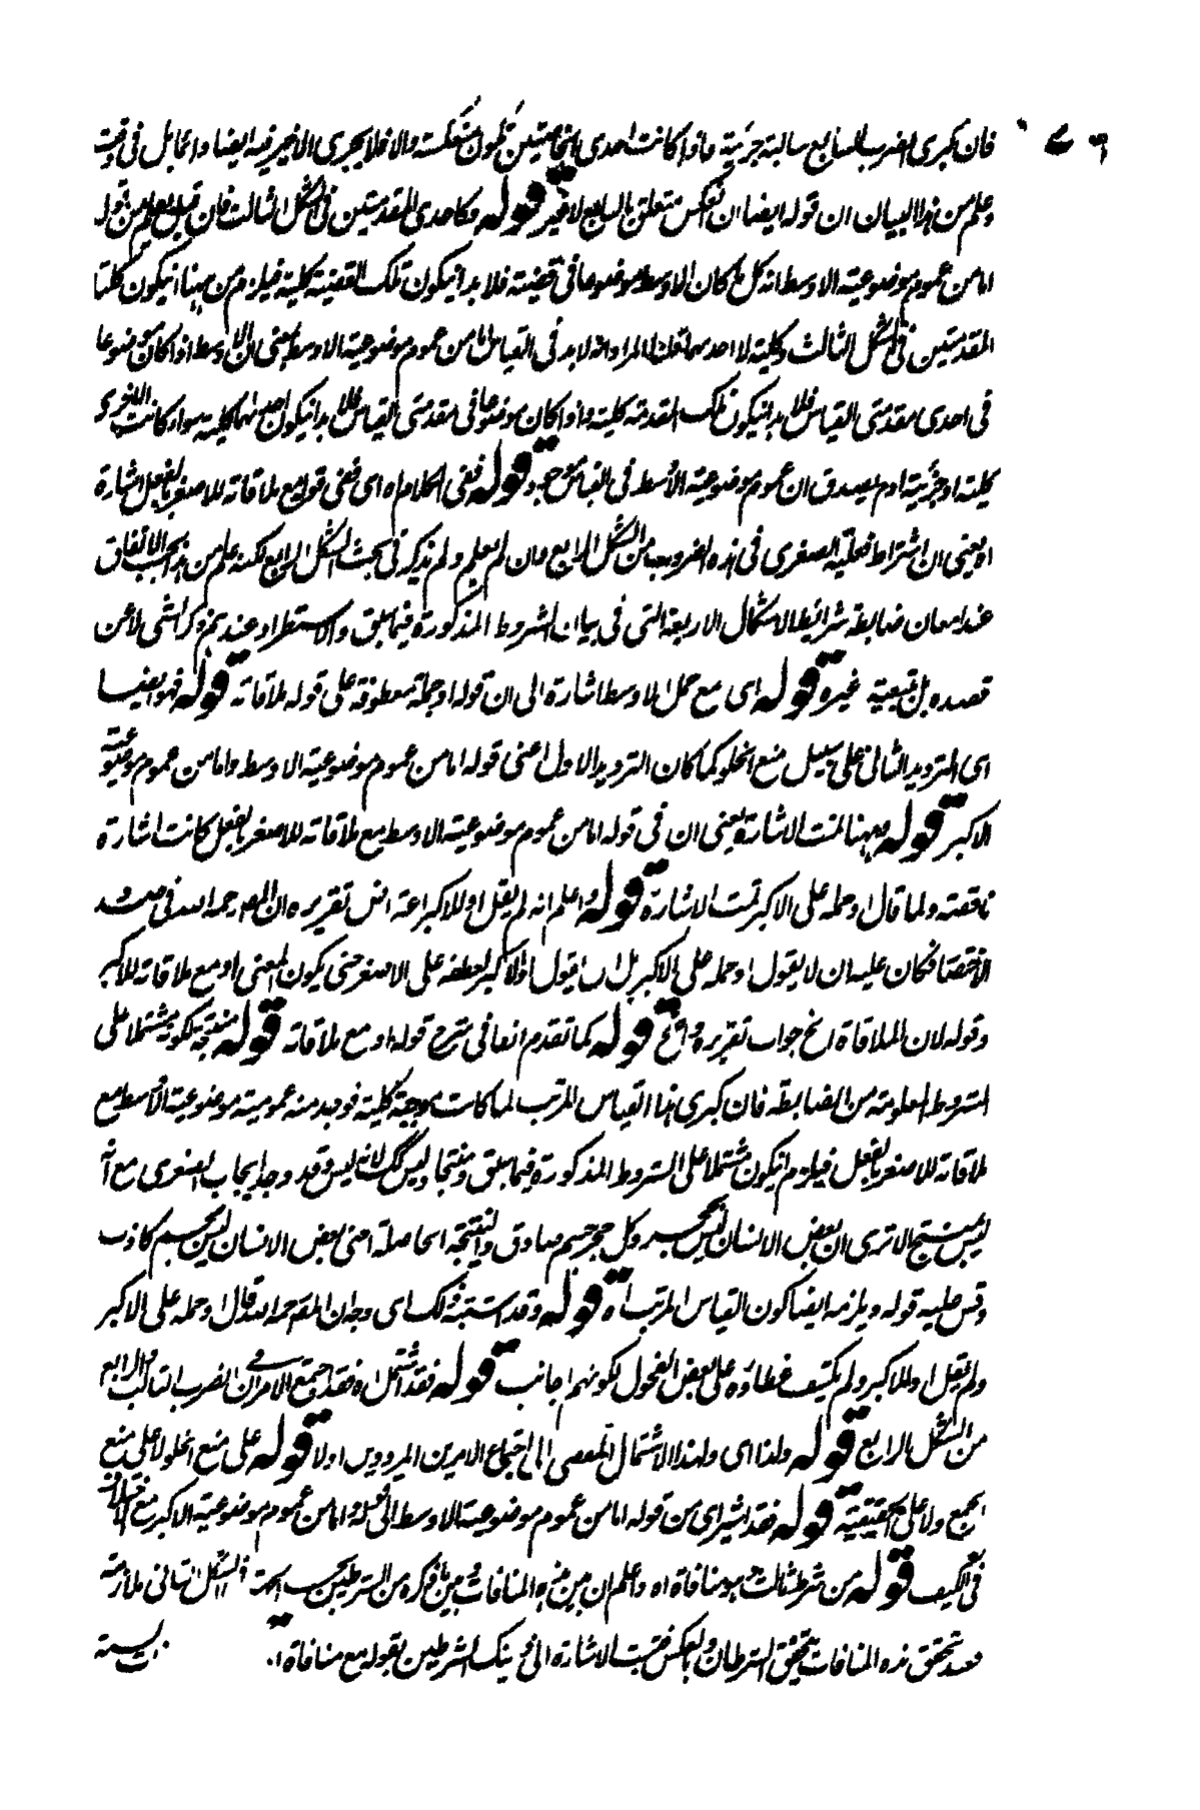 فان كبرى الضرب السابع سالبة جزئية واذا كانت احدى الخاصتين تكون منعكسة والا فلا يجرى الاخير فيه ايضا
وعلم من هذا البيان ان قوله ايضا ان انعكس متعلق بالسابع لا غير قوله وكاحدى المقدمتين فى الشكل الثالث فان قيل يعلم من قوله
اما من عموم موضوعية الاوسط انه كل ما كان الاوسط موضوعا فى قضية فلا بد ان يكون تلك القضية كلية فيلزم من ههنا ان يكون كلتا
المقدمتين فى الشكل الثالث كلية لا احدهما قلنا المراد انه لا بد فى القياس اما من عموم موضوعية الاوسط بمعنى ان الاوسط اذا كان موضوعا
فى احدى مقدمتى القياس فلا بد ان يكون تلك المقدمة كلية واذا كان موضوعا فى مقدمتى القياس فلا بد ان يكون احدهما كلية سواء كانت الاخرى
كلية او جزئية اذ يصدق ان عموم موضوعية الاوسط فى القياس موجود قوله ففى الكلام اه اى ففى قوله مع ملاقاته للاصغر بالفعل اشارة
او يعنى ان اشتراط فعلية الصغرى فى هذه الضروب من الشكل الرابع وان لم يعلم ولم يذكر فى بحث الشكل الرابع لكنه علم من هذا بحسب الاتفاق
عند امعان ضابطة شرائط الاشكال الاربعة التى فى بيان الشروط المذكورة فيما سبق والاستطراد عندهم ذكر الشئ لا عن
قصده بل بتبعية غيره قوله اى مع حمل الاوسط اشارة الى ان قوله او حمله معطوفة على قوله ملاقاته قوله فهو ايضا
اى الترديد الثانى على سبيل منع الخلو كما كان الترديد الاول اعنى قوله اما من عموم موضوعية الاوسط واما من عموم موضوعية
الاكبر قوله وههنا تمت الاشارة يعنى ان فى قوله اما من عموم موضوعية الاوسط مع ملاقاته للاصغر بالفعل كانت اشارة
ناقصة ولما قال او حمله على الاكبر تمت الاشارة قوله واعلم انه لم يقل او للاكبر اعتراض تقريره ان المصـ رحمه الله فى صدد
الاختصار فكان عليه ان لا يقول او حمله على الاكبر بل ان يقول او للاكبر لعطفه على الاصغر حتى يكون المعنى او مع ملاقاته للاكبر
وقوله لان الملاقاة الخ جواب تقريره واضح قوله كما تقدم انفا فى شرح قوله او مع ملاقاته قوله منتجة لكونه مشتملا على
الشروط المعلومة من الضابطة فان كبرى هذا القياس المرتب لما كانت موجبة كلية فوجد منه عمومية موضوعية الاوسط مع
ملاقاته للاصغر بالفعل فيلزم ان يكون مشتملا على الشروط المذكورة فيما سبق ومنتجا وليس كك لانه ليس وقد وجد ايجاب الصغرى مع انه
ليس بمنتج الا ترى ان بعض الانسان ليس بحجر وكل حجر جسم صادق والنتيجة الحاصلة اعنى بعض الانسان ليس بجسم كاذب
وقس عليه قوله ويلزمه ايضا كون القياس المرتب اه قوله وقد اشتبه ذلك اى وجه ان المصـ رحمه الله قال او حمله على الاكبر
ولم يقل او للاكبر ولم يكشف غطاؤه على بعض الفحول لكونهم اجانب قوله فقد اشتمل اه فقد اجتمع الامران فى الضرب الثالث والرابع
من الشكل الرابع قوله ولذا اى ولهذا الاشتمال المفضى الى اجتماع الامرين المرددين اولا قوله على منع الخلو لا على منع
الجمع ولا على الحقيقية قوله فقد اشير اى من قوله اما من عموم موضوعية الاوسط الى قوله واما من عموم موضوعية الاكبر مع الاختلاف
فى الكيف قوله من شرط ثالث وهو منافاة اه واعلم ان بين هذه المنافات وبين ما ذكره من الشرطين بحسب الجهة فى الشكل الثانى ملازمة
فعند تحقق هذه المنافات يتحقق الشرطان وبالعكس فتمت الاشارة الى ذينك الشرطين بقوله مع منافاة اه